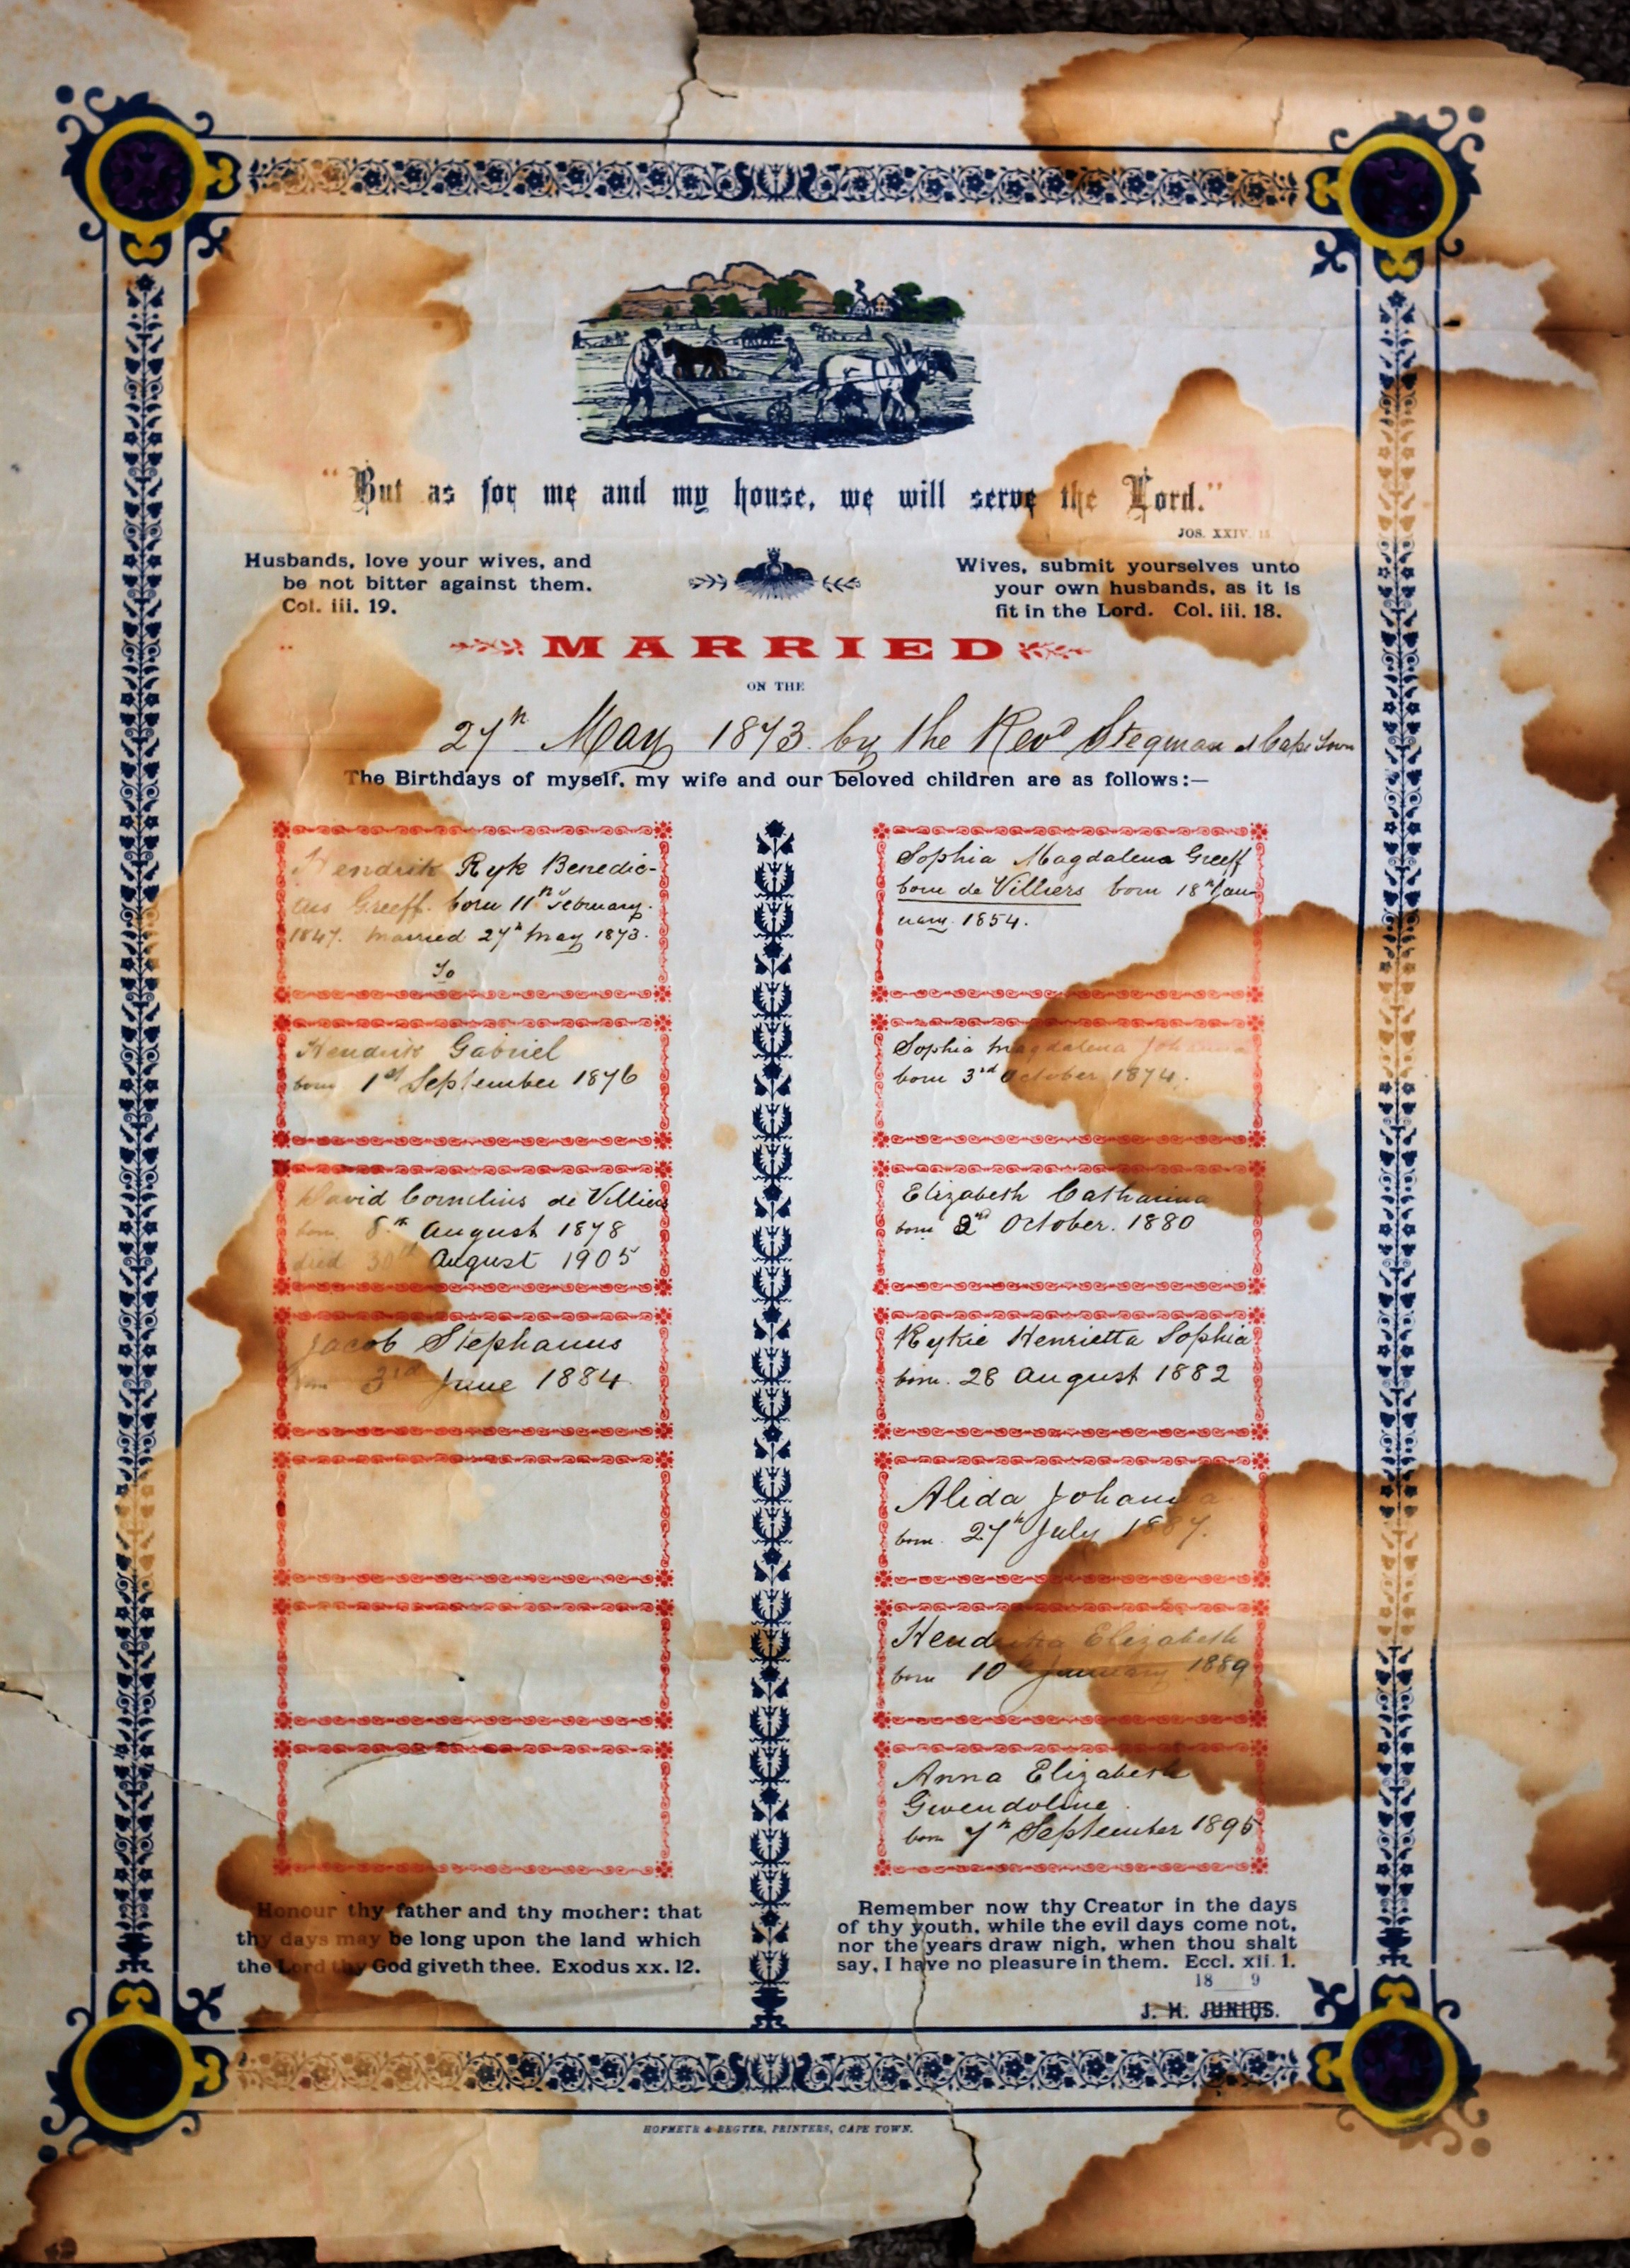 "But as for me and my house, we will serve the Lord."
JOS. XXIV. 15.
Husbands, love your wives, and
be not bitter against them.
Col. iii. 19.
Wives, submit yourselves unto
your own husbands, as it is
fit in the Lord. Col. iii. 18.
MARRIED
ON THE
27th May 1873. by the Revd Stegman at Cape Town
The Birthdays of myself, my wife and our beloved children are as follows:—
Hendrik Ryk Benedic-
tus Greeff. born 11th February.
1847. married 27th May 1873.
To
Sophia Magdalena Greeff
born de Villiers born 18th Jan-
uary. 1854.
Hendrik Gabriel
born 1st September 1876
Sophia Magdalena Johanna
born 3rd October 1874.
David Cornelius de Villiers
born 8th August 1878
died 30th August 1905
Elizabeth Catharina
born 2nd October. 1880
Jacob Stephanus
born 3rd June 1884
Rykie Henrietta Sophia
born. 28 August 1882
Alida Johanna
born. 27th July 1887.
Hendrika Elizabeth
born 10th January 1889
Anna Elizabeth
Gwendoline
born 7th September 1895
Honour thy father and thy mother: that
thy days may be long upon the land which
the Lord thy God giveth thee. Exodus xx. 12.
Remember now thy Creator in the days
of thy youth, while the evil days come not,
nor the years draw nigh, when thou shalt
say, I have no pleasure in them. Eccl. xii. 1.
18 9
J. H. JUNIUS.
HOFMEYR & REGTER, PRINTERS, CAPE TOWN.